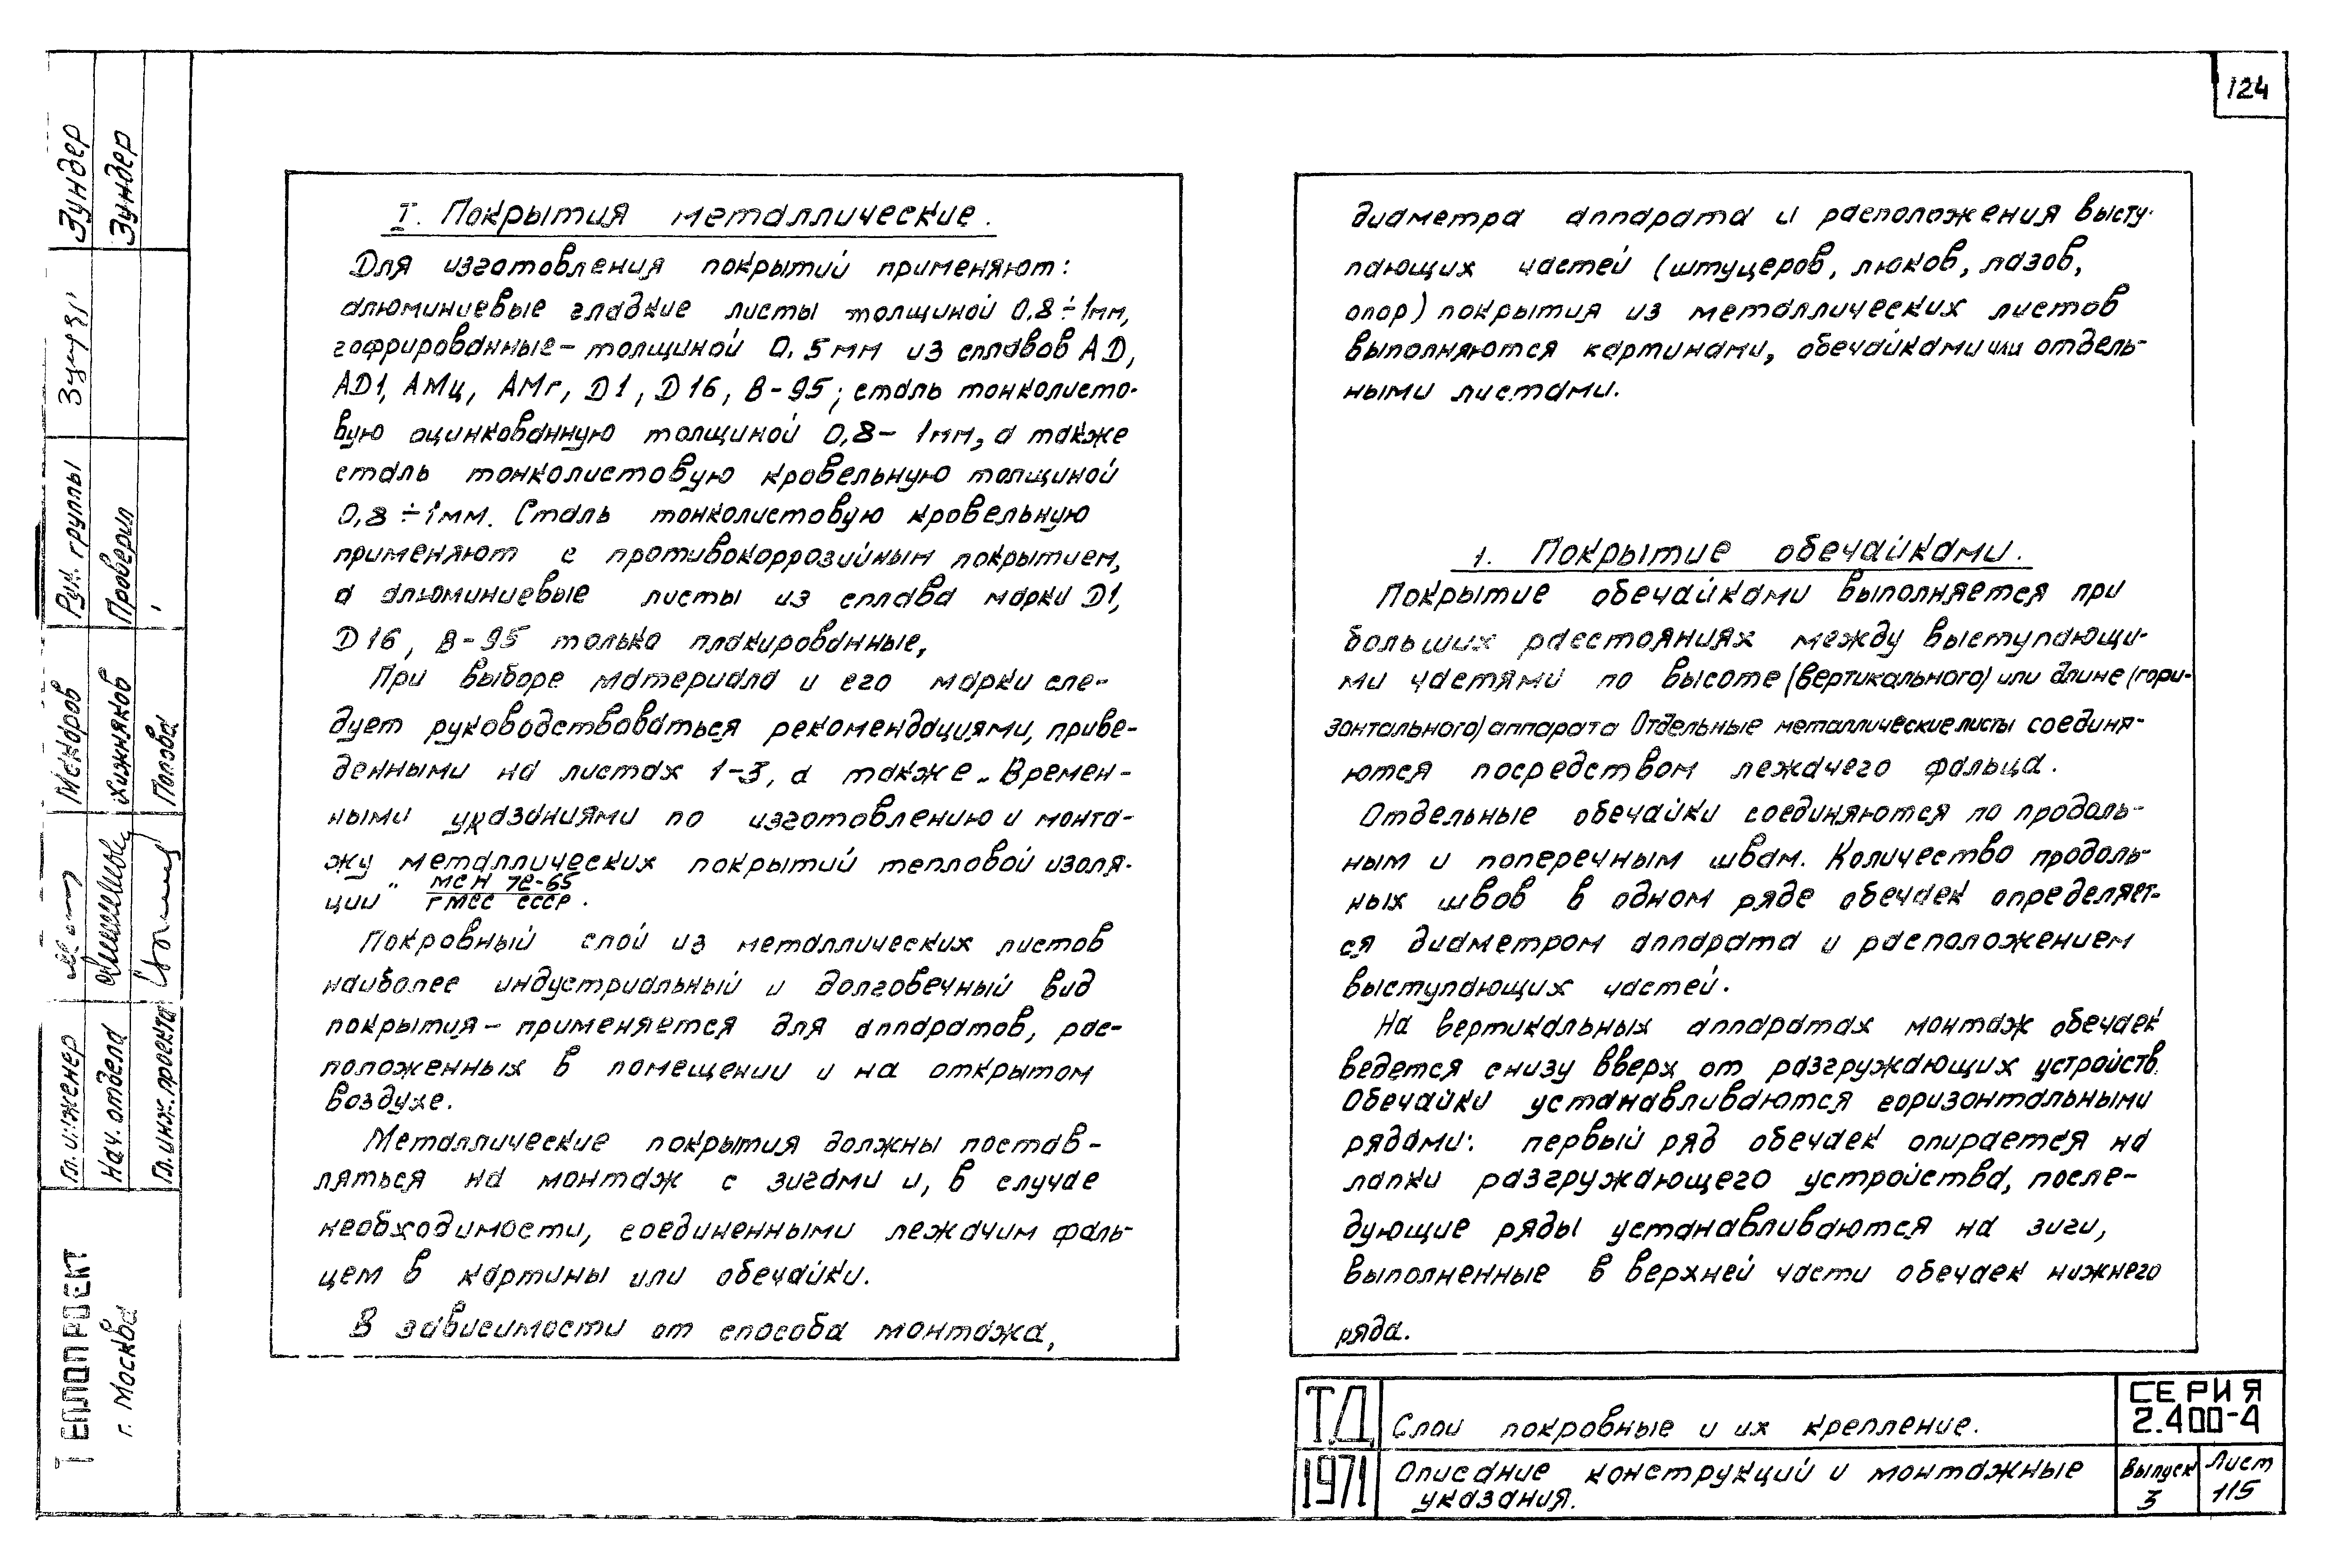 124
I. Покрытия металлические.
Для изготовления покрытий применяют:
алюминиевые гладкие листы толщиной 0.8÷1мм,
гофрированные – толщиной 0.5мм из сплавов АД,
АД1, АМц, АМг, Д1, Д16, В-95; сталь тонколисто-
вую оцинкованную толщиной 0,8– 1мм, а также
сталь тонколистовую кровельную толщиной
0,8÷1мм. Сталь тонколистовую кровельную
применяют с противокоррозийным покрытием,
а алюминиевые листы из сплава марки Д1,
Д16, В-95 только плакированные,
При выборе материала и его марки сле-
дует руководствоваться рекомендациями, приве-
денными на листах 1–3, а также „Времен-
ными указаниями по изготовлению и монта-
жу металлических покрытий тепловой изоля-
ции" МСН 72-65
ГМСС СССР.
Покровный слой из металлических листов
наиболее индустриальный и долговечный вид
покрытия – применяется для аппаратов, рас-
положенных в помещении и на открытом
воздухе.
Металлические покрытия должны постав-
ляться на монтаж с зигами и, в случае
необходимости, соединенными лежачим фаль-
цем в картины или обечайки.
В зависимости от способа монтажа,
диаметра аппарата и расположения высту-
пающих частей (штуцеров, люков, лазов,
опор) покрытия из металлических листов
выполняются картинами, обечайками или отдель-
ными листами.
1. Покрытие обечайками.
Покрытие обечайками выполняется при
больших расстояниях между выступающи-
ми частями по высоте (вертикального) или длине (гори-
зонтального) аппарата Отдельные металлические листы соединя-
ются посредством лежачего фальца.
Отдельные обечайки соединяются по продоль-
ным и поперечным швам. Количество продоль-
ных швов в одном ряде обечаек определяет-
ся диаметром аппарата и расположением
выступающих частей.
На вертикальных аппаратах монтаж обечаек
ведется снизу вверх от разгружающих устройств.
Обечайки устанавливаются горизонтальными
рядами: первый ряд обечаек опирается на
лапки разгружающего устройства, после-
дующие ряды устанавливаются на зиги,
выполненные в верхней части обечаек нижнего
ряда.
ТД
1971
Слои покровные и их крепление.
Описание конструкций и монтажные
указания.
СЕРИЯ
2.400-4
Выпуск
3
Лист
115
ТЕПЛОПРОЕКТ
г. Москва
Гл. инженер Мекаров Рук. группы Зундер
Нач. отдела Хижняков Проверил Зундер
Гл. инж. проекта Попова